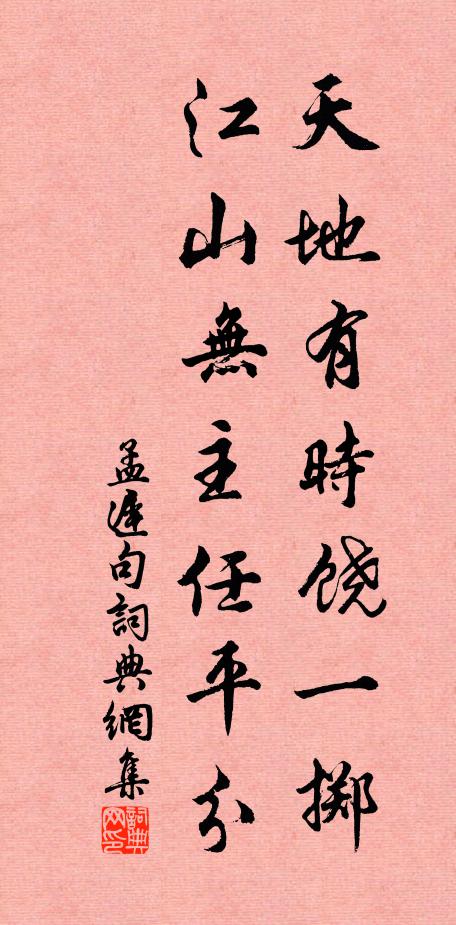 天地有時饶一掷
江山無主任平分
孟遅句詞典網集
詞典网印